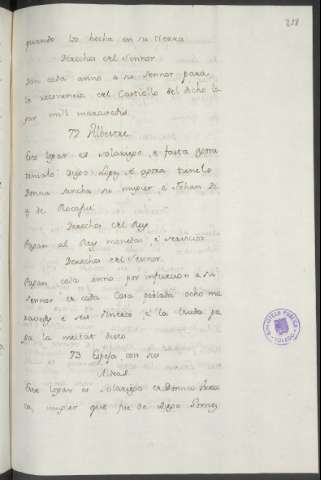 218
quando lo hecha en su tierra
Derechos del Señor
Dan cada anno a su Sennor para
la tenencia del Castiello del dicho la
por mil maravedis
72 Ribertte
Este logar es solariego, e fasta
Diego Lopez e tienelo
Donna Sancha su muger, e Johan
z de Rocafu
Derechos del Rey
Pagan al Rey monedas, e servicios
Derechos del Sennor
Pagan cada anno por infurcion a su
Sennor en cada Casa poblada ocho ma
ravedis e seis dineros e la viuda pa
ga la meitat desto
73 Espeja con su
Aldeas
Este logar es solariego de Donna
ca, muger que fue de Diego Perez
BIBLIOTECA PUBLICA TOLEDO